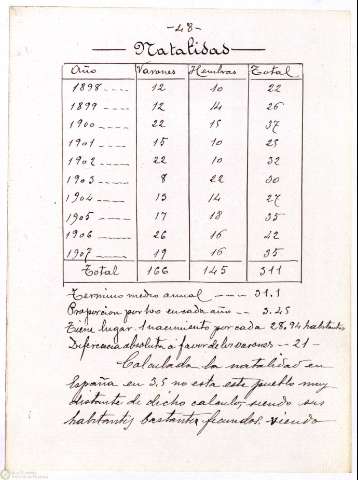 -48-
Natalidad
Año Varones Hembras Total
1898 ---- 12 10 22
1899 ---- 12 14 26
1900 ---- 22 15 37
1901 ---- 15 10 25
1902 ---- 22 10 32
1903 ---- 8 22 30
1904 ---- 13 14 27
1905 ---- 17 18 35
1906 ---- 26 16 42
1907 ---- 19 16 35
Total 166 145 311
Termino medio anual ---- 31.1
Proporcion por 100 en cada año -- 3.45
Tiene lugar 1 nacimiento por cada 28,94 habitantes
Diferencia absoluta a favor de los varones -- 21 -
Calculada la natalidad en
España en 3,5 no esta este pueblo muy
distante de dicho calculo, siendo sus
habitantes bastante fecundos. siendo